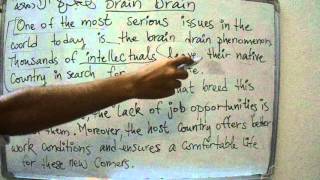 Brain Drain
"One of the most serious issues in the
world today is the brain drain phenomenon
Thousands of intellectuals leave their native
Country in search for
that breed this
the lack of job opportunities is
them. Moreover, the host Country offers better
work conditions and ensures a comfortable life
for these new Comers.